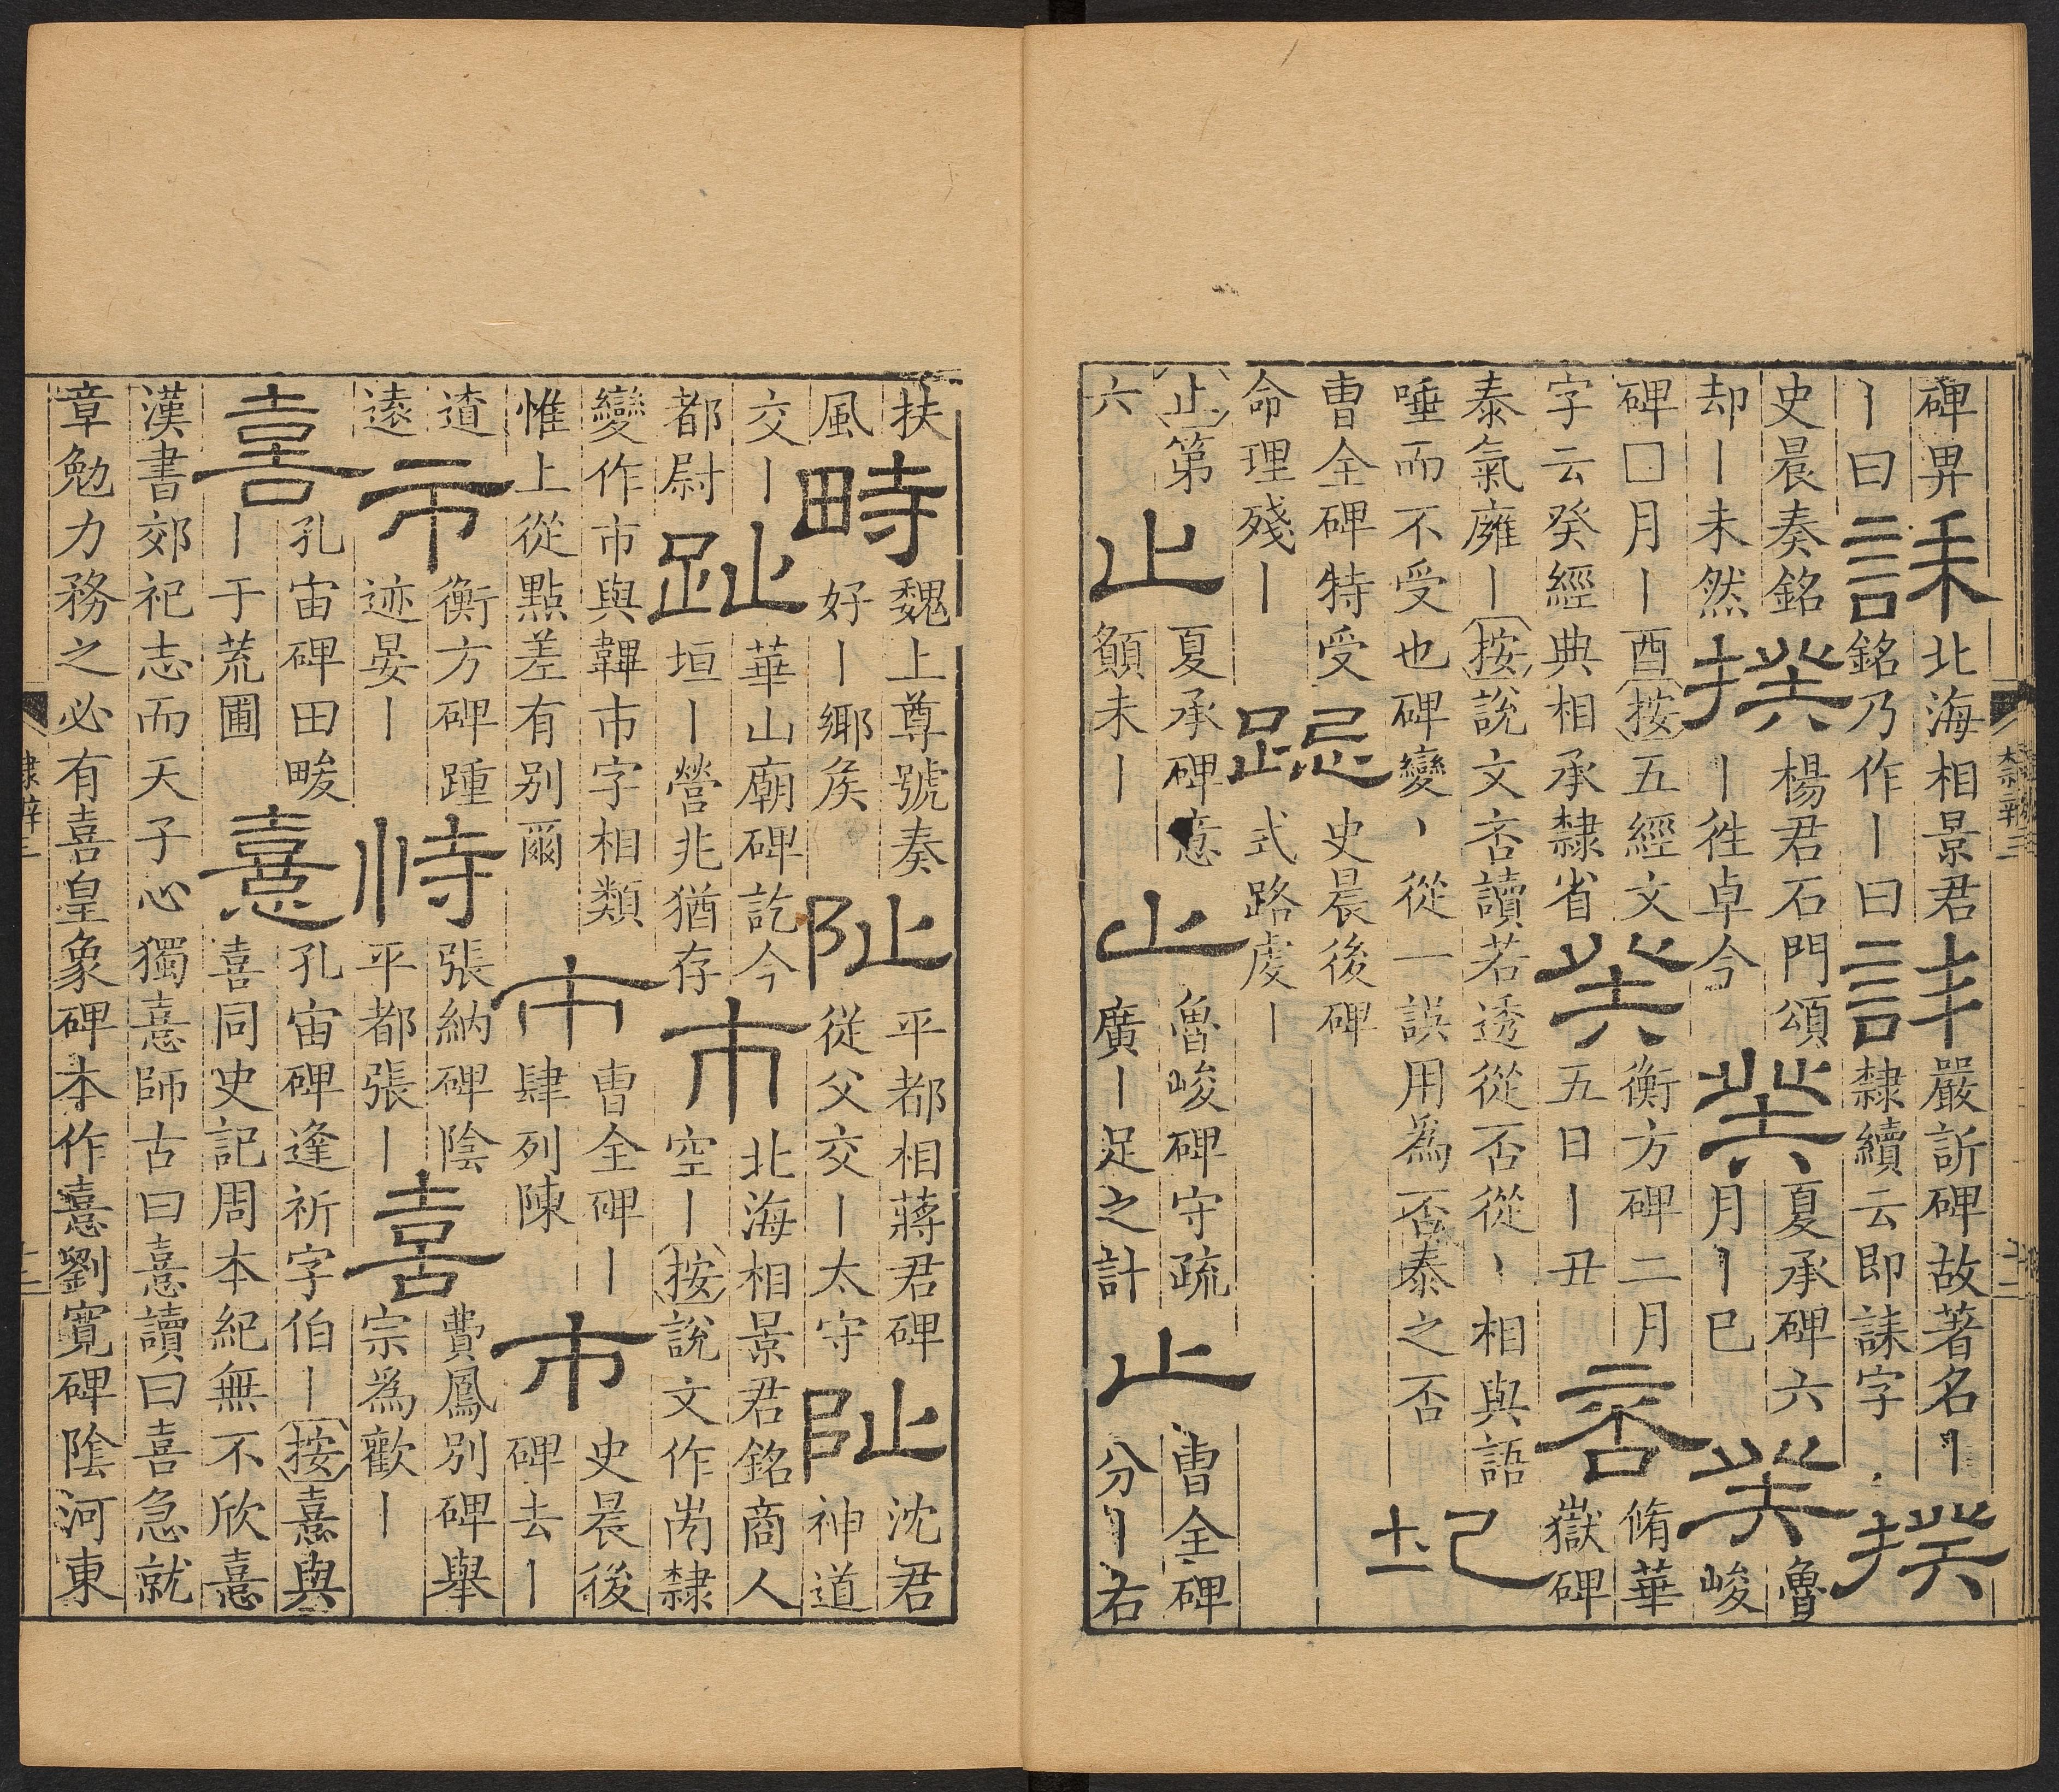 碑畀丨曰誄北海相景君銘乃作丨曰誄嚴訢碑故著名丨隸續云即誄字揆
史晨奏銘却丨未然揆楊君石門頌丨往卓今癸夏承碑六月丨巳癸魯峻
碑□月丨酉按五經文字云癸經典相承隸省癸衡方碑二月五日丨丑否脩華嶽碑
泰氣廱丨按說文否讀若透從否從丶相與語唾而不受也碑變丶從一誤用為否泰之否圮
曹全碑特受命理殘丨跽史晨後碑式路虔丨
止第六止夏承碑意顛未丨止魯峻碑守疏廣丨足之計止曹全碑分丨右
隸辨三
扶風畤魏上尊號奏好丨鄉矦阯平都相蔣君碑從父交丨太守阯沈君神道
交丨都尉趾華山廟碑訖今垣丨營兆猶存市北海相景君銘商人空丨按說文作𡴆隸
變作市與韠市字相類惟上從點差有别爾市曹全碑丨肆列陳市史晨後碑去丨
道遠市衡方碑踵迹晏丨恃張納碑陰平都張丨喜費鳳別碑舉宗為歡丨
喜孔宙碑田畯丨于荒圃憙孔宙碑逢祈字伯丨按憙與喜同史記周本紀無不欣憙
漢書郊祀志而天子心獨憙師古曰憙讀曰喜急就章勉力務之必有喜皇象碑本作憙劉寬碑陰河東